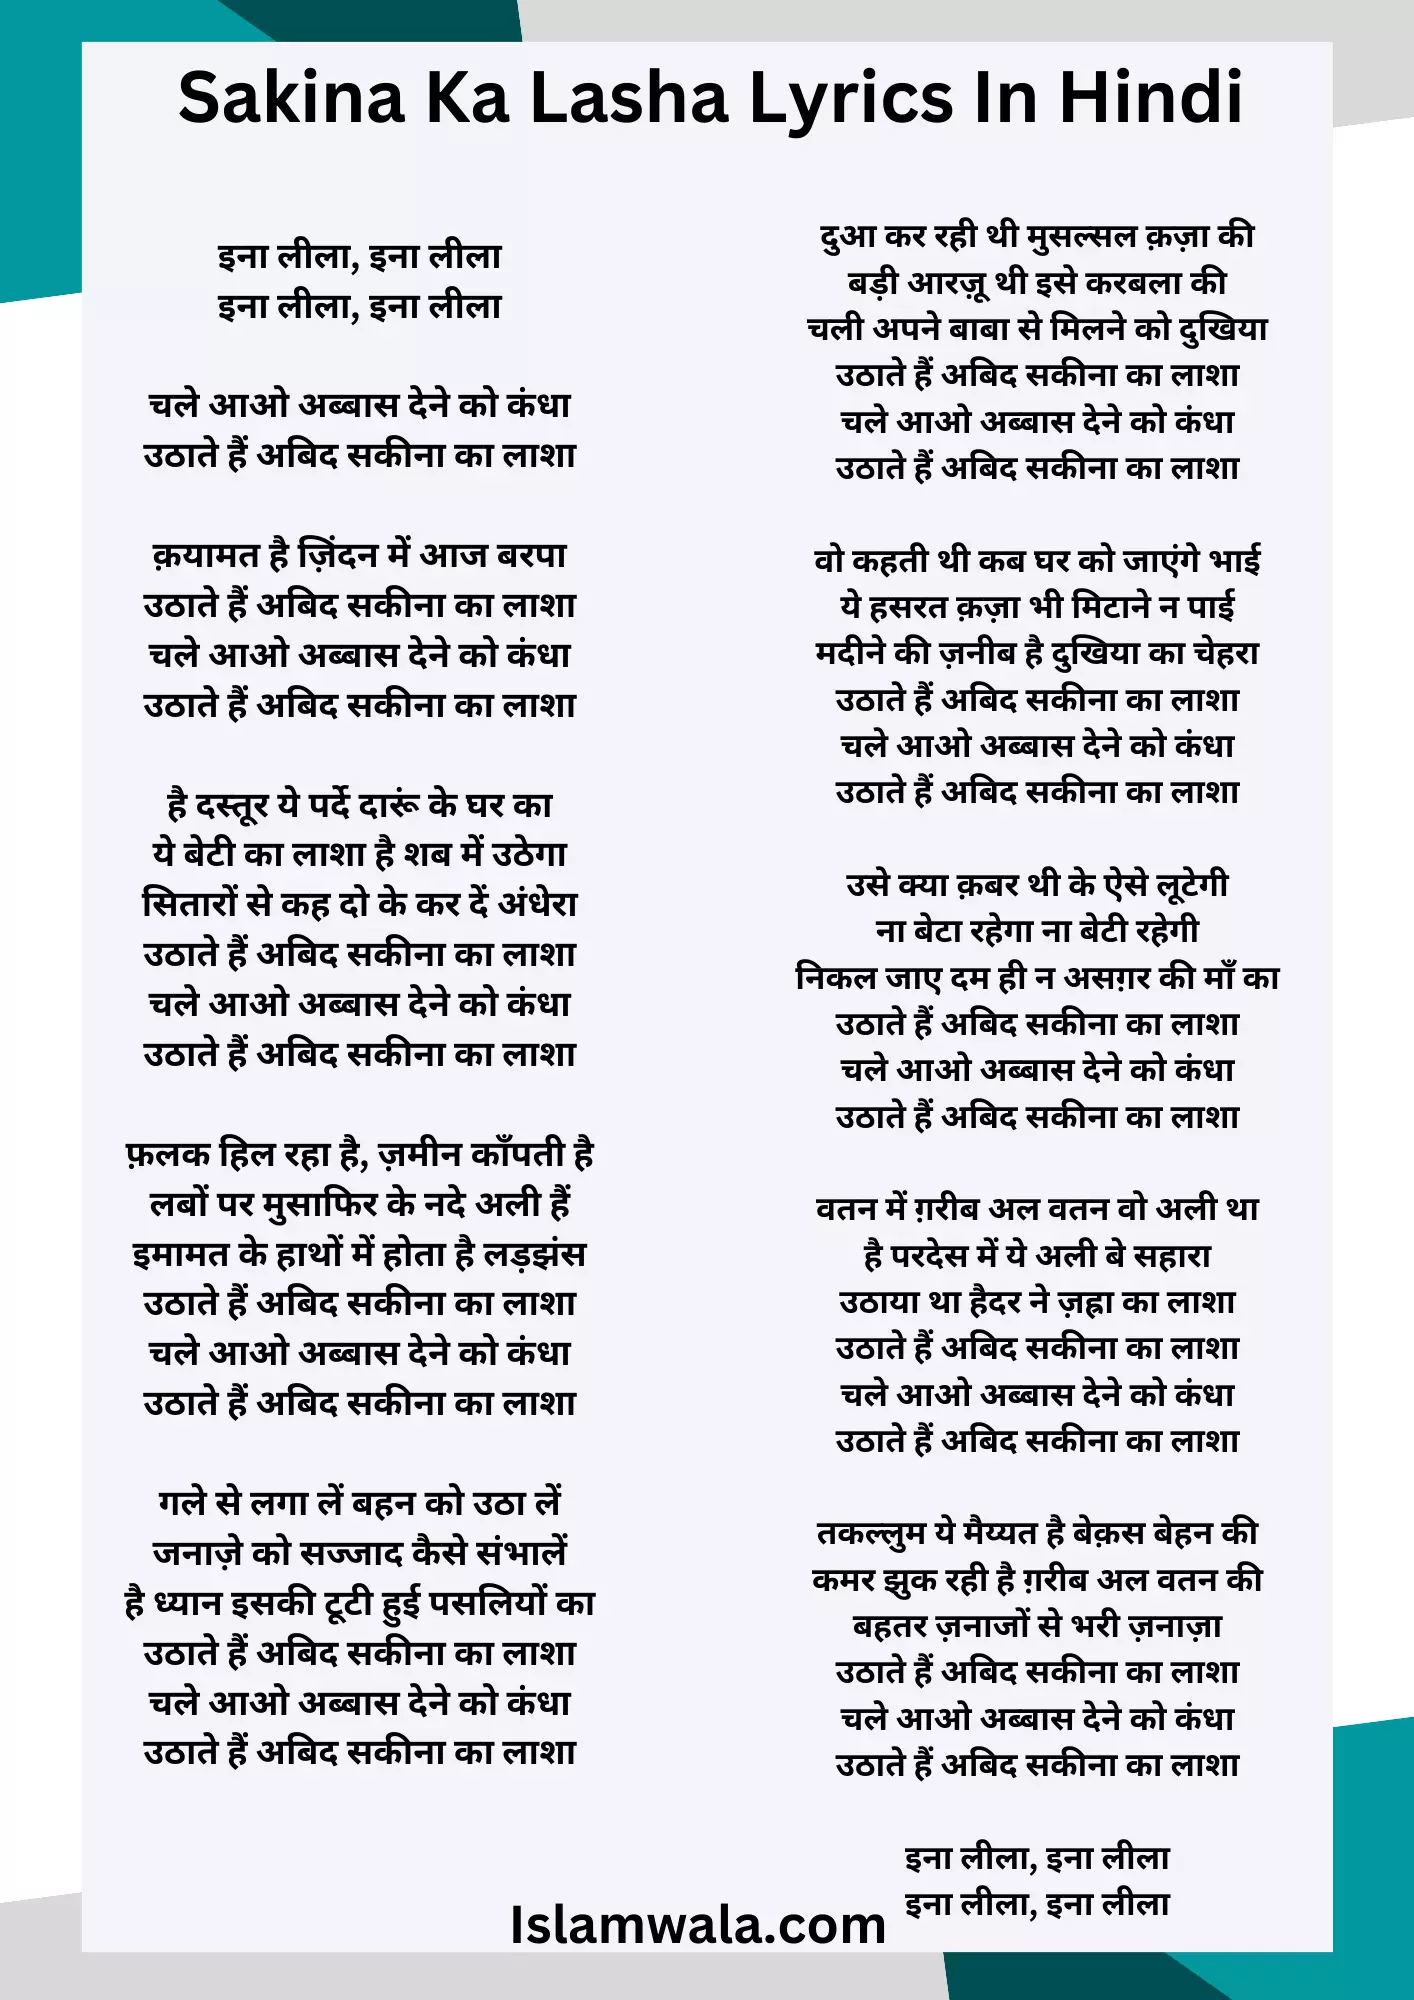 Sakina Ka Lasha Lyrics In Hindi
इना लीला, इना लीला
इना लीला, इना लीला
चले आओ अब्बास देने को कंधा
उठाते हैं अबिद सकीना का लाशा
क़यामत है ज़िंदन में आज बरपा
उठाते हैं अबिद सकीना का लाशा
चले आओ अब्बास देने को कंधा
उठाते हैं अबिद सकीना का लाशा
है दस्तूर ये पर्दे दारूं के घर का
ये बेटी का लाशा है शब में उठेगा
सितारों से कह दो के कर दें अंधेरा
उठाते हैं अबिद सकीना का लाशा
चले आओ अब्बास देने को कंधा
उठाते हैं अबिद सकीना का लाशा
फ़लक हिल रहा है, ज़मीन काँपती है
लबों पर मुसाफिर के नदे अली हैं
इमामत के हाथों में होता है लड़झंस
उठाते हैं अबिद सकीना का लाशा
चले आओ अब्बास देने को कंधा
उठाते हैं अबिद सकीना का लाशा
गले से लगा लें बहन को उठा लें
जनाज़े को सज्जाद कैसे संभालें
है ध्यान इसकी टूटी हुई पसलियों का
उठाते हैं अबिद सकीना का लाशा
चले आओ अब्बास देने को कंधा
उठाते हैं अबिद सकीना का लाशा
दुआ कर रही थी मुसल्सल क़ज़ा की
बड़ी आरज़ू थी इसे करबला की
चली अपने बाबा से मिलने को दुखिया
उठाते हैं अबिद सकीना का लाशा
चले आओ अब्बास देने को कंधा
उठाते हैं अबिद सकीना का लाशा
वो कहती थी कब घर को जाएंगे भाई
ये हसरत क़ज़ा भी मिटाने न पाई
मदीने की ज़नीब है दुखिया का चेहरा
उठाते हैं अबिद सकीना का लाशा
चले आओ अब्बास देने को कंधा
उठाते हैं अबिद सकीना का लाशा
उसे क्या क़बर थी के ऐसे लूटेगी
ना बेटा रहेगा ना बेटी रहेगी
निकल जाए दम ही न असग़र की माँ का
उठाते हैं अबिद सकीना का लाशा
चले आओ अब्बास देने को कंधा
उठाते हैं अबिद सकीना का लाशा
वतन में ग़रीब अल वतन वो अली था
है परदेस में ये अली बे सहारा
उठाया था हैदर ने ज़ह्रा का लाशा
उठाते हैं अबिद सकीना का लाशा
चले आओ अब्बास देने को कंधा
उठाते हैं अबिद सकीना का लाशा
तकल्लुम ये मैय्यत है बेक़स बेहन की
कमर झुक रही है ग़रीब अल वतन की
बहतर ज़नाजों से भरी ज़नाज़ा
उठाते हैं अबिद सकीना का लाशा
चले आओ अब्बास देने को कंधा
उठाते हैं अबिद सकीना का लाशा
इना लीला, इना लीला
इना लीला, इना लीला
Islamwala.com